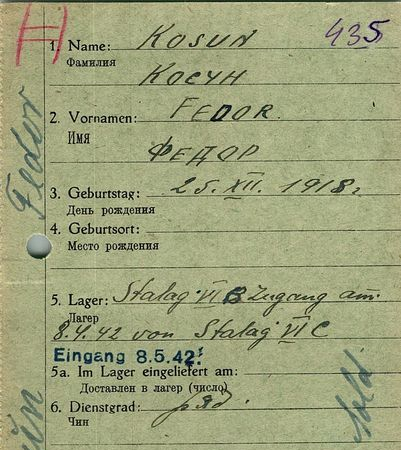 H
435
1. Name: KOSUN
Фамилия
КОСУН
2. Vornamen: FEDOR
Имя
ФЕДОР
3. Geburtstag: 25. XII. 1918г
День рождения
4. Geburtsort:
Место рождения
5. Lager: Stalag VI B Zugang am:
Лагер
8.4.42 von Stalag VI C
Eingang 8.5.42.
5a. Im Lager eingeliefert am:
Доставлен в лагер (число)
6. Dienstgrad: ряд.
Чин
Fedor